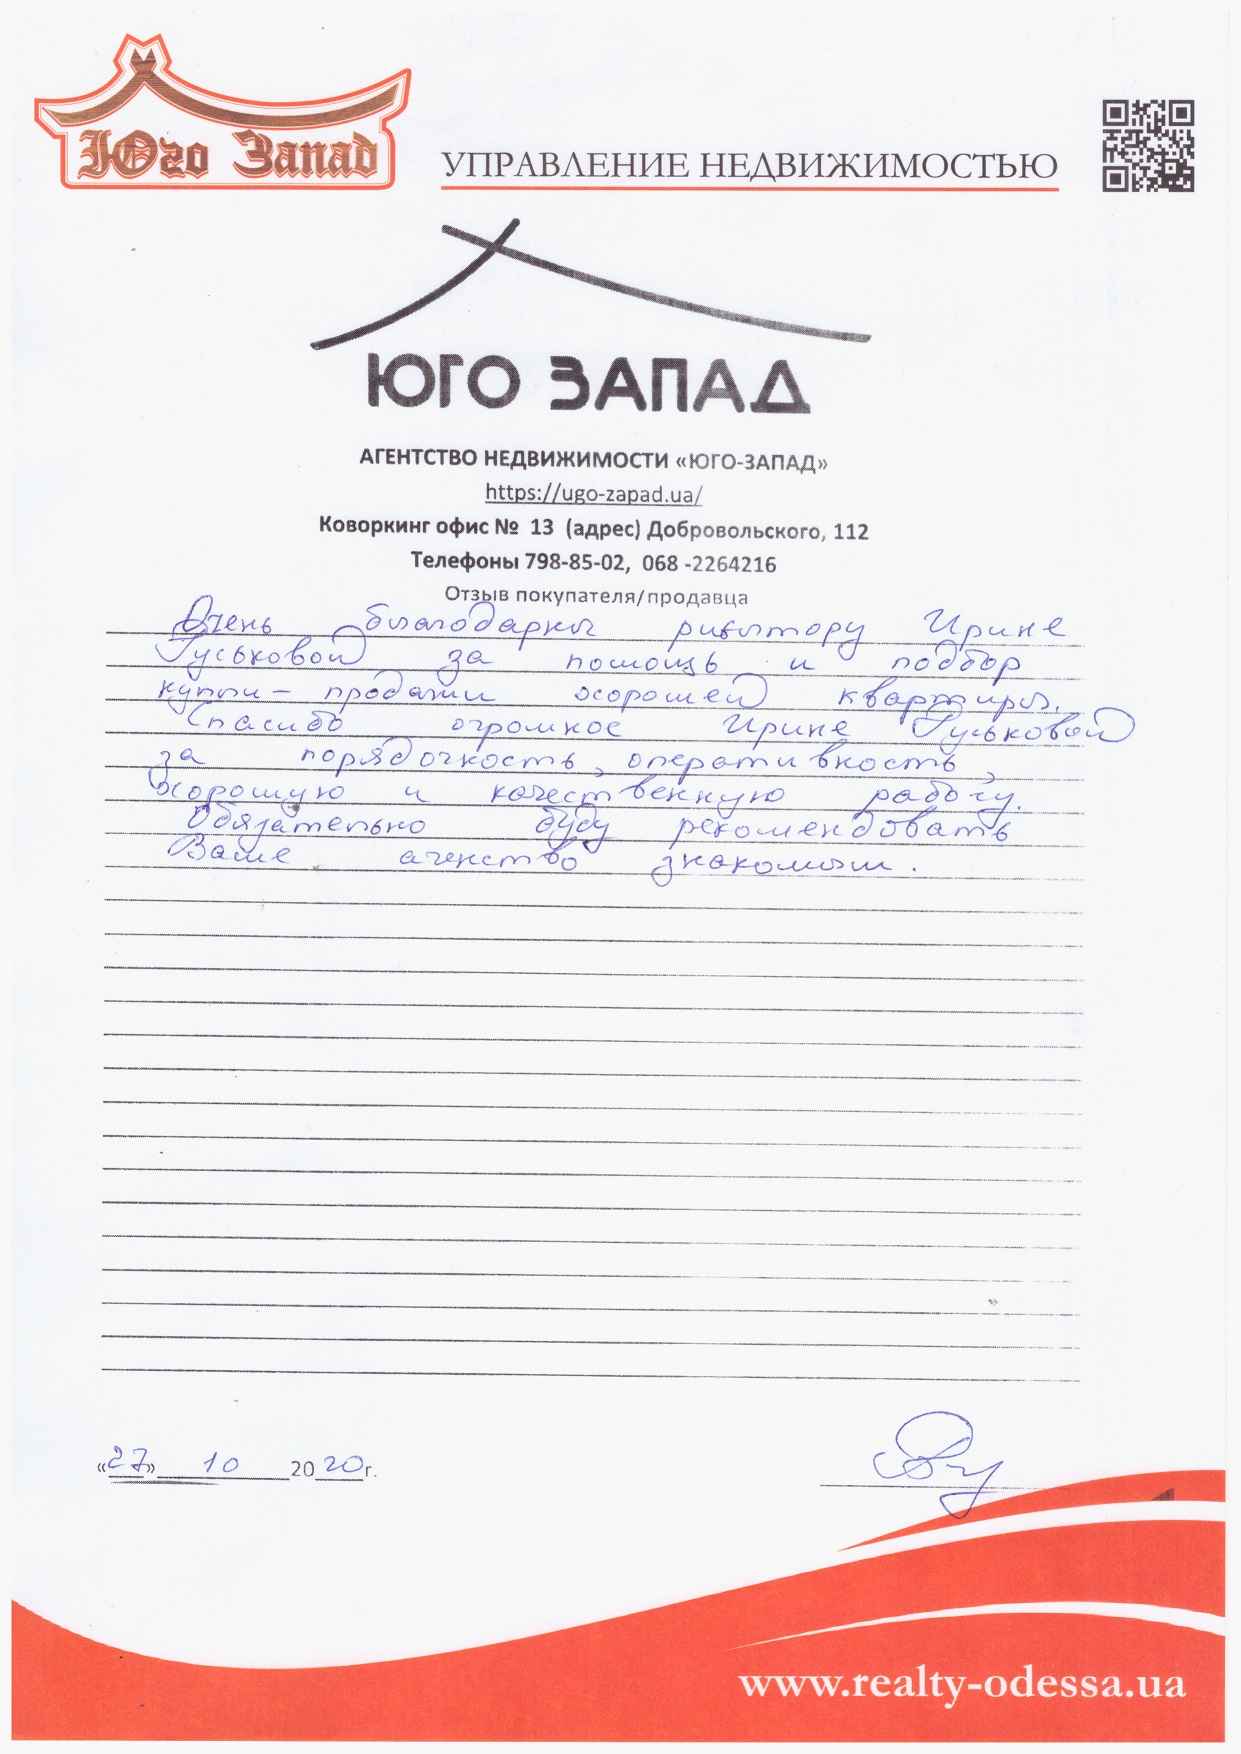 Юго Запад
УПРАВЛЕНИЕ НЕДВИЖИМОСТЬЮ
ЮГО ЗАПАД
АГЕНТСТВО НЕДВИЖИМОСТИ «ЮГО-ЗАПАД»
https://ugo-zapad.ua/
Коворкинг офис № 13 (адрес) Добровольского, 112
Телефоны 798-85-02, 068 -2264216
Отзыв покупателя/продавца
Очень благодарны риэлтору Ирине
Гуськовой за помощь и подбор
купли - продажи хорошей квартиры.
Спасибо огромное Ирине Гуськовой
за порядочность, оперативность,
хорошую и качественную работу.
Обязательно буду рекомендовать
Ваше агенство знакомым.
«27» 10 2020г.
www.realty-odessa.ua